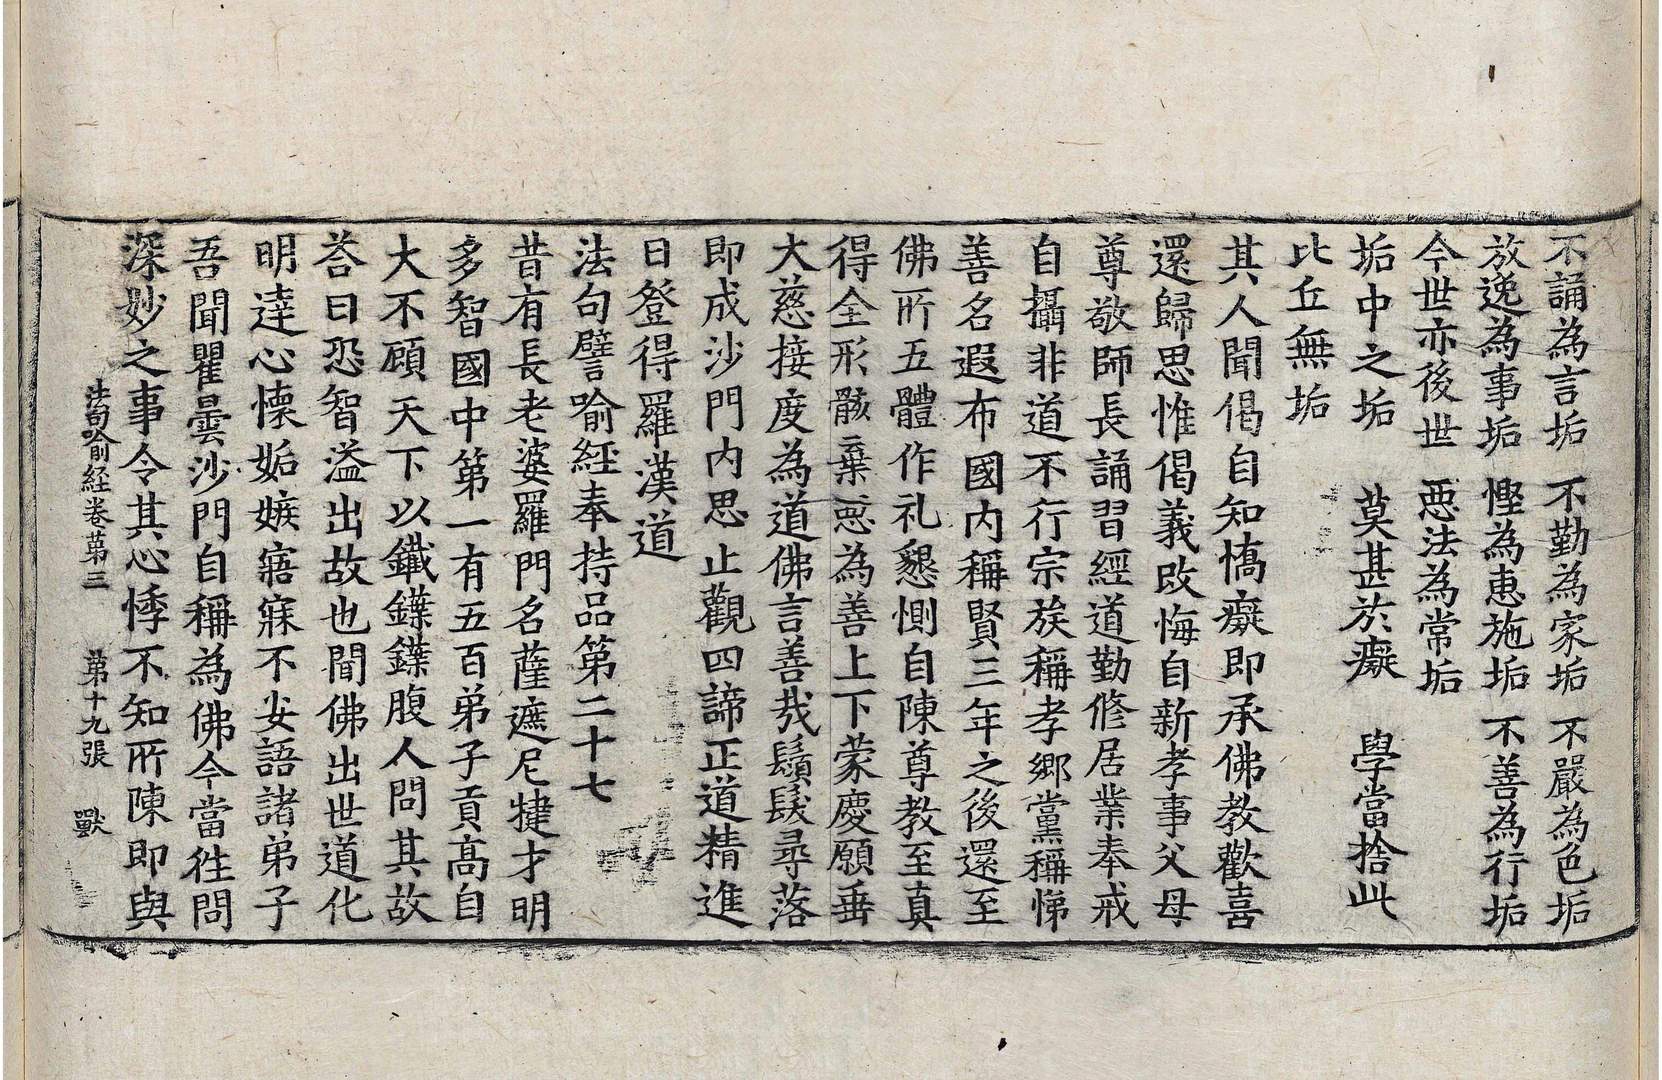 不誦為言垢　不勤為家垢　不嚴為色垢
放逸為事垢　慳為惠施垢　不善為行垢
今世亦後世　惡法為常垢
垢中之垢　莫甚於癡　學當捨此
比丘無垢
其人聞偈自知憍癡即承佛教歡喜
還歸思惟偈義改悔自新孝事父母
尊敬師長誦習經道勤修居業奉戒
自攝非道不行宗族稱孝鄉黨稱悌
善名遐布國內稱賢三年之後還至
佛所五體作礼懇惻自陳尊教至真
得全形骸棄惡為善上下蒙慶願垂
大慈接度為道佛言善哉鬚髮尋落
即成沙門內思止觀四諦正道精進
日登得羅漢道
法句譬喻經奉持品第二十七
昔有長老婆羅門名薩遮尼揵才明
多智國中第一有五百弟子貢高自
大不顧天下以鐵鍱鍱腹人問其故
荅曰恐智溢出故也聞佛出世道化
明達心懷妬嫉寤寐不安語諸弟子
吾聞瞿曇沙門自稱為佛今當往問
深妙之事令其心悸不知所陳即與
法句喻経卷苐三　苐十九張　獸